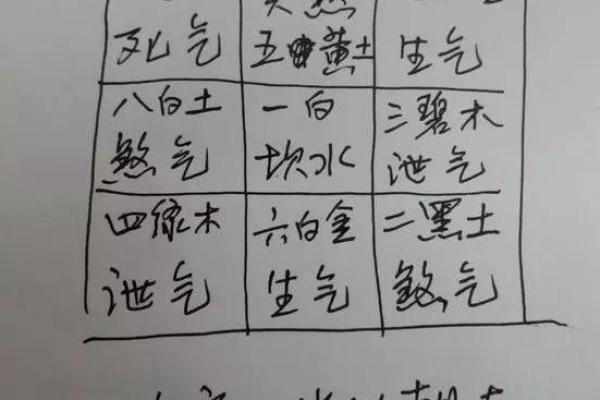 死气 五黄土 生气
八白土 一白 三碧木
煞气 坎水 泄气
四绿木 六白金 二黑土
泄气 生气 煞气